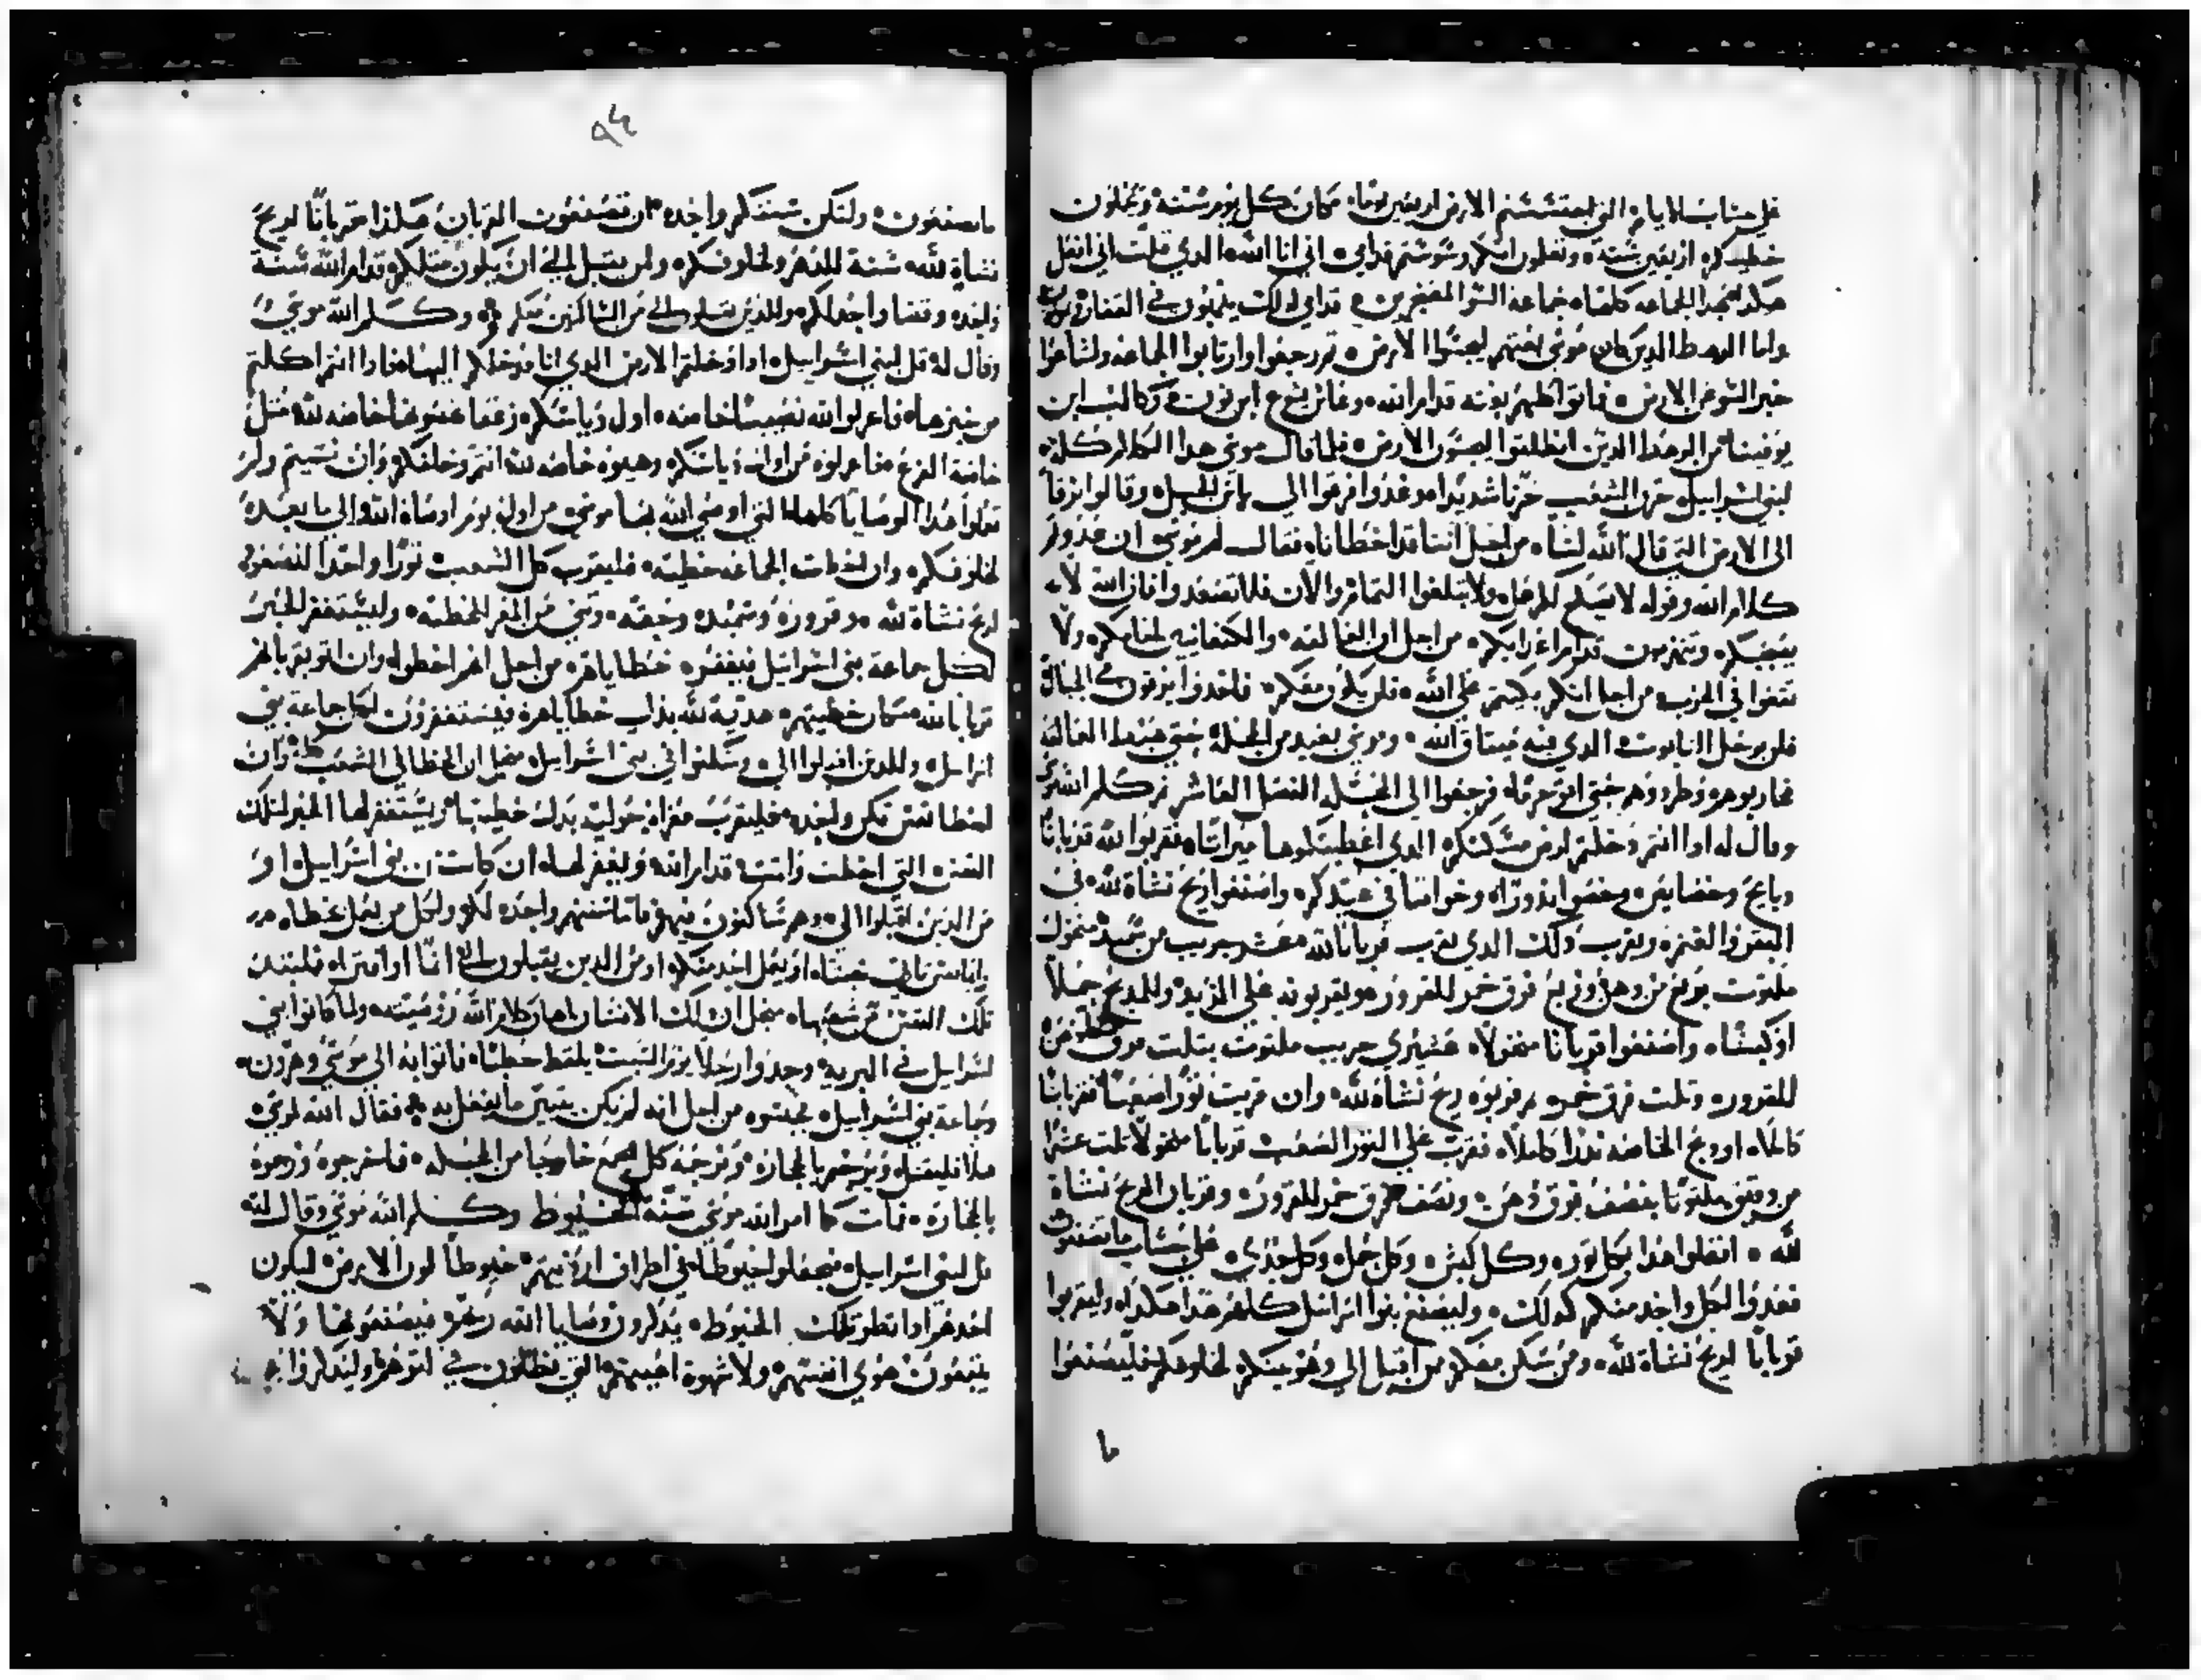 على حساب الايام التي اجتسستم الارض اربعين يوما مكان كل يوم سنة وتحملون
خطيتكم اربعين سنة وتعلمون انكم وسوستم قدامي اني انا الله الدي قلت اني افعل
هكدا بهده الجماعه كلها جماعة السو المتمرين قدامي لدلك يتيهون في القفار
واما الرهط الدين كان موسى بعتهم ليجسوا الارض تم رجعوا وارتابوا الجماعه واشاعوا
خبر السو عن الارض فاتوا بموته قدام الله وعاش يشوع ابن نون وكالب ابن
يوفينا من الرهط الدين انطلقوا ليجسون الارض فلما قال موسى هدا الكلام كله
لبني اسراييل حزن الشعب حزنا شديدا وغدوا فرقوا الى راس الجبل وقالوا نرقا
الى الارض التي قال الله لنا من اجل اننا قد اخطانا فقال لهم موسى ان عدوتم
كلام الله وقوله لا يصلح لكم ولا تبلغوا التمام والان فلا تصعدوا فان الله لا
بينكم وتنهزمون قدام اعدايكم من اجل ان العمالقه والكنعانيه امامكم ولا
تقعوا في الحرب من اجل انكم عن الله فلن يكون معكم فاخدوا يرقون الجبال
فلم يدخل التابوت الدي فيه ميتاق الله وموسى بعيد من الجبله حتى هبط العمالقه
فحاربوهم وطردوهم حتى الى حرما فرجعوا الى الجبله الفصل العاشر تم كلم الله موسى
وقال له ادا انتم دخلتم ارض مسكنكم الدي اعطيتكموها ميراتا فقربوا لله قربانا
دبايح وخصايص وخصوا ندورا وخواصا في عيدكم واصنعوا ريح نشاة لله من
البقر والغنم ويقرب دلك الدي يقرب قربانا لله عشر جريب من سميد منخول
ملتوت بربع من دهن وربع فرق خمر للقرور هو يقربونه على المزبد وللمدبح حملا
او كبشا واصنعوا قربانا منخولا عشيري جريب ملتوت بتلت فرق دهن
للقرور وتلت فرق خمر قربوه ريح نشاة لله وان قربت تورا صعبا قربانا
كاملا او دبح الخاصه ندرا كاملا فقرب على التور الصعب قربانا منخولا تلت عشرا
من دقيق ملتوتا بنصف فرق دهن ونصف فرق خمر للقرور وقربان الريح نشاة
لله افعلوا هدا بكل تور وكل كبش وكل حمل وكل جدي على حساب ما تصنعون
فعدوا لكل واحد منكم كدلك وليصنع بنوا اسرائيل كلهم هدا هكدا وليقربوا
قربانا لريح نشاة لله ومن سكن معكم من اقبل الي وهو بينكم لخلوفكم فليصنعوا
٩٤
ما تصنعون ولتكن سنتكم واحده كما تصنعون القربان هكدا قربانا لريح
نشاة لله سنة للدهر ولخلوفكم ولمن يقبل الي ان يكون متلكم قدام الله سنة
واحده وقضا واحد لكم وللدين يقبلون الي من الساكنين معكم وكلم الله موسى
وقال له قل لبني اسراييل ادا دخلتم الارض الدي انا مدخلكم اليها فادا انتم اكلتم
من خبزها فاعزلوا لله نصيبا خاصه اول دياسكم رغفا عشورها خاصه لله متل
خاصة الزرع فاعزلوه من اول دياسكم وهبوه خاصه لله انتم وخلفكم وان نسيتم ولم
تعملوا هدا الوصايا كلها التي اوصى الله بها موسى من اول يوم اوصاه الله والى ما بعده
لخلوفكم وان اخطات الجماعه خطيه فليقرب كل الشعب تورا واحدا للصعود
لريح نشاة لله وقروره وسميده وحقه وتني من المعز للخطيه وليستغفر الحبر
لكل جماعة بني اسراييل فيغفر خطاياهم من اجل انهم اخطوا وان اتوبتم باتم
قربانا لله مكان خطيتهم هدية لله بداب خطاياهم فيستغفرون لكل جماعة بني
اسراييل وللدين اقبلوا الي وسكنوا في بني اسراييل من اجل ان الخطا في الشعب وان
اخطا نفس تكن واحده فليقرب معزاه حوليه بدل خطيتها ويستغفر لها الحبر لتلك
النفس التي اخطت واتمت قدام الله وليغفر لها ان كانت من بني اسراييل او
من الدين اقبلوا الي وهم ساكنون فيهم فانما سنتهم واحده لكم ولكل من يعمل خطا
وايما نفس خبتا او يعمل احد منكم او من الدين يقبلون الي اتما او افترا فلتبد
تلك النفس من شعبها من اجل ان دلك الانسان اهان كلام الله ووصيته ولما كانوا بني
اسراييل في البريه وجدوا رجلا يوم السبت يلقط حطبا فاتوا به الى موسى وهرون
وجماعة بني اسراييل فحبسوه من اجل انه لم يكن يتبين ما يفعل به فقال الله لموسى
هدا فليقتل ويرجم بالحجاره وترجمه كل الجمع خارجا من الجبله فاخرجوه ورجموه
بالحجاره فمات كما امر الله موسى سنة الخيوط وكلم الله موسى وقال له
قل لبني اسراييل فيجعلوا خيوطا في اطراف ارديتهم خيوطا لون الارض ليكون
احدهم ادا نظر تلك الخيوط يدكرون وصايا الله ربهم فيصنعونها ولا
يتبعون هوى انفسهم ولا شهوة اعينهم التي تظلون في اتوهم وليدكروا